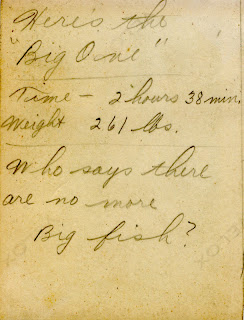 "Here's the
"Big One"
Time – 2 hours 38 min.
Weight 261 lbs.
Who says there
are no more
Big fish?